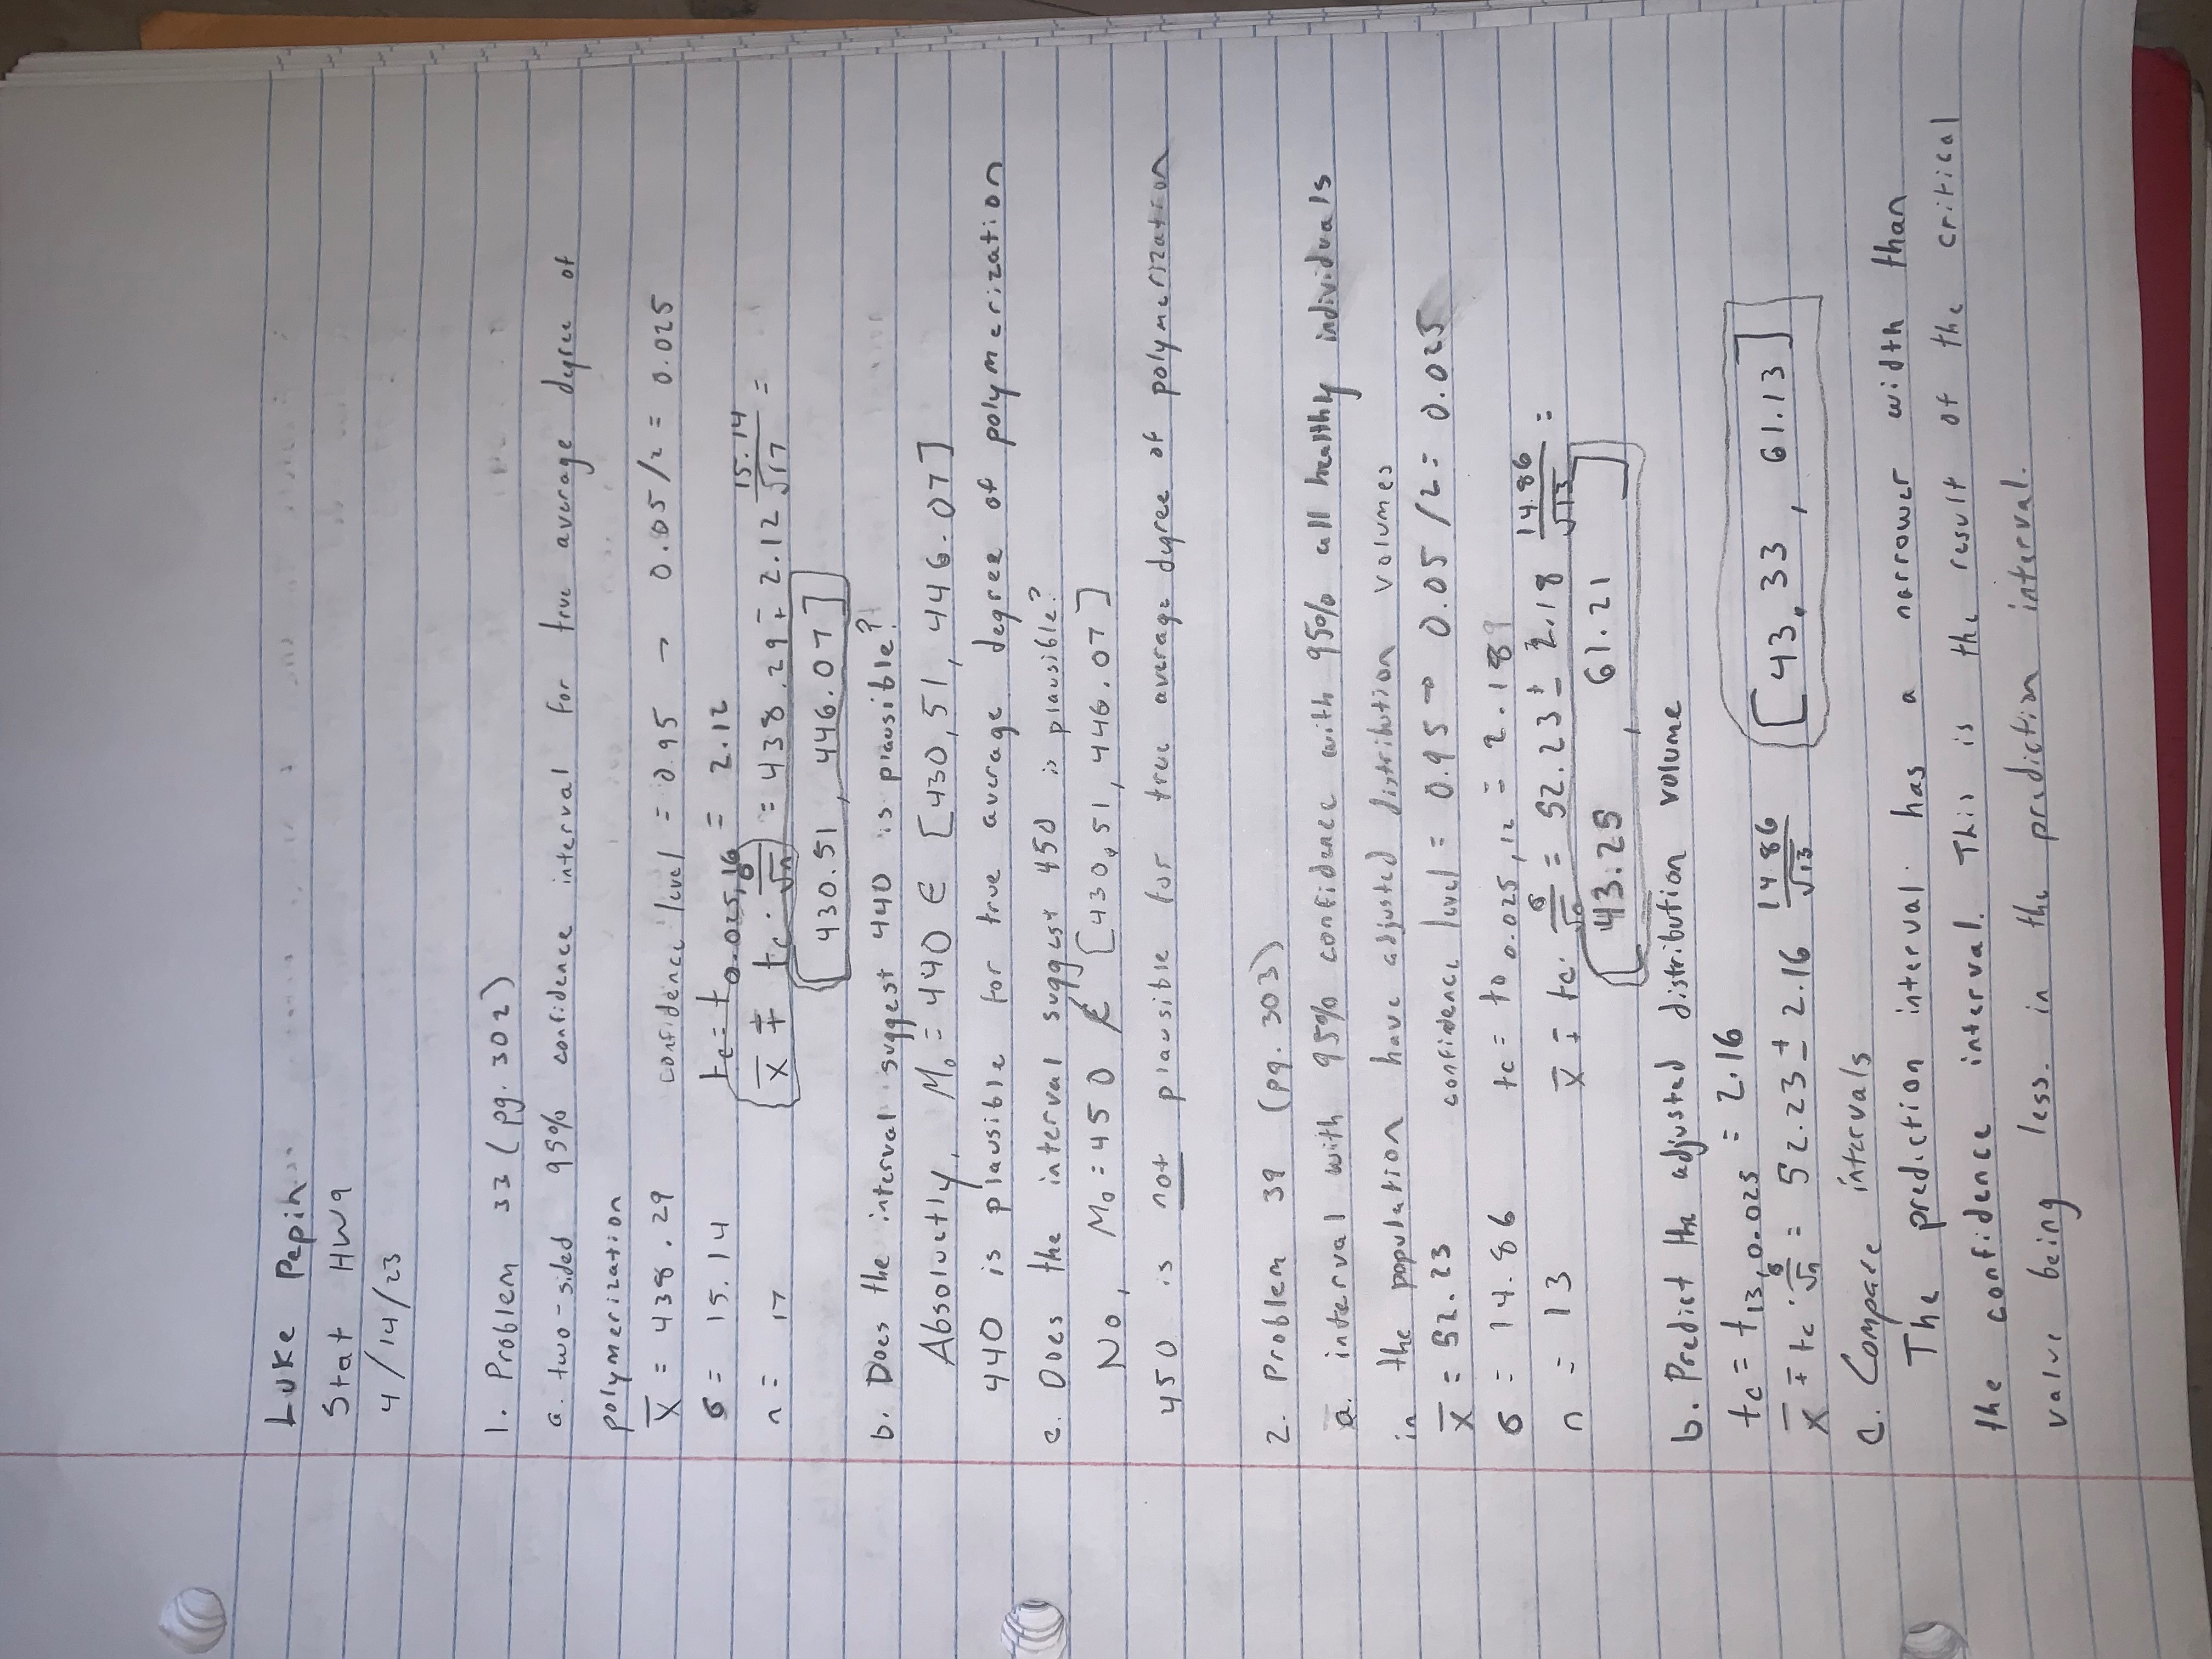 Luke Pepin
Stat HW9
4/14/23
1. Problem 33 (pg. 302)
a. two-sided 95% confidence interval for true average degree of
polymerization
x̄ = 438.29 confidence level = 0.95 → 0.05/2 = 0.025
σ = 15.14 tc = t0.025,16 = 2.12
n = 17 x̄ ∓ tc · σ/√n = 438.29 ∓ 2.12 15.14/√17 =
[430.51, 446.07]
b. Does the interval suggest 440 is plausible?
Absoluetly, M₀ = 440 ∈ [430,51, 446.07]
440 is plausible for true average degree of polymerization
c. Does the interval suggest 450 is plausible?
No, M₀ = 450 ∉ [430.51, 446.07]
450 is not plausible for true average degree of polymerization
2. Problem 39 (pg. 303)
a. interval with 95% confidence with 95% all healthly individuals
in the population have adjusted distribution volumes
x̄ = 52.23 confidence level = 0.95 → 0.05/2 = 0.025
σ = 14.86 tc = t0 0.025,12 = 2.189
n = 13 x̄ ∓ tc · σ/√n = 52.23 ± 2.18 14.86/√13 =
[43.25, 61.21]
b. Predict the adjusted distribution volume
tc = t13,0.025 = 2.16
x̄ ∓ tc · σ/√n = 52.23 ± 2.16 14.86/√13 [43.33, 61.13]
c. Compare intervals
The prediction interval has a narrower width than
the confidence interval. This is the result of the critical
value being less. in the prediction interval.